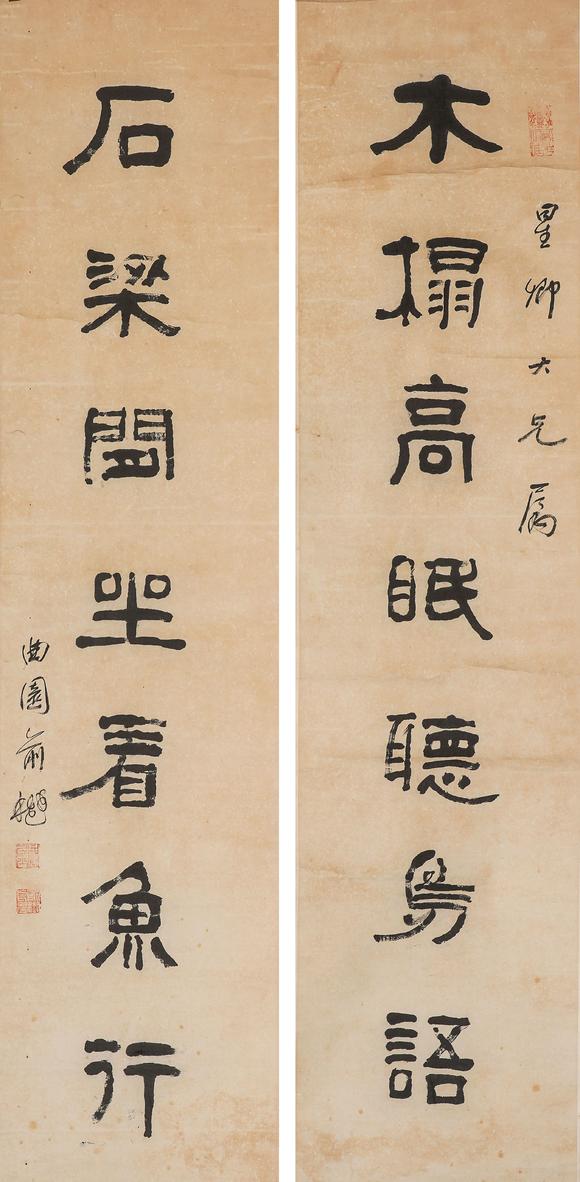 星卿大兄属
木榻高眠聽鳥語
石梁閒坐看魚行
曲園俞樾